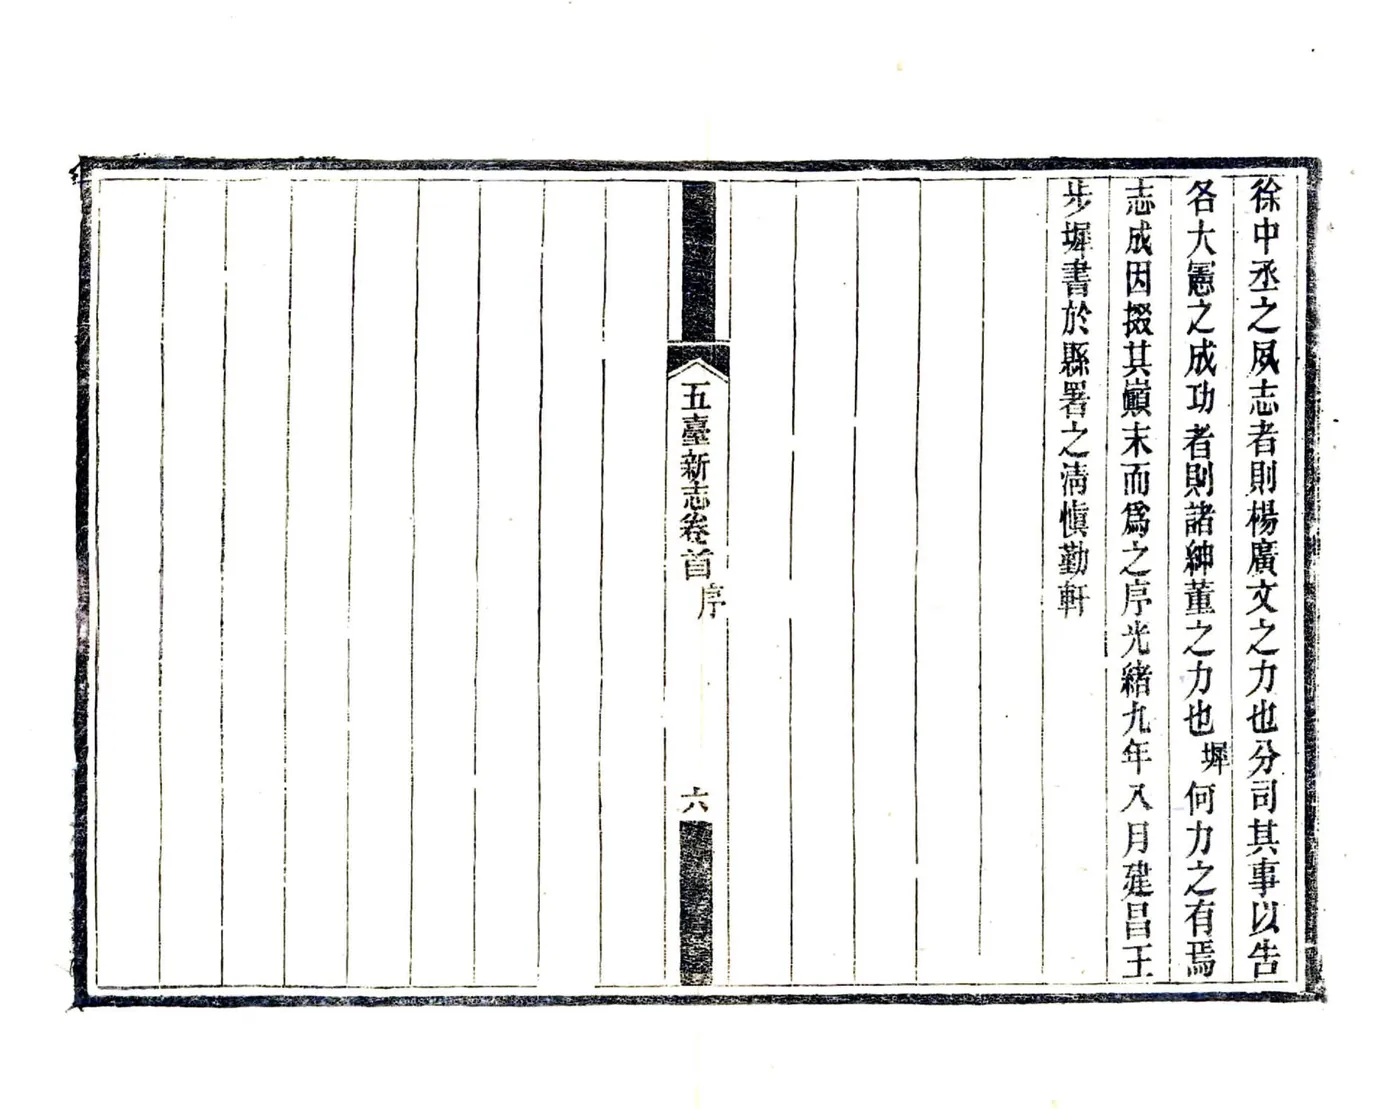 徐中丞之夙志者則楊廣文之力也分司其事以告
各大憲之成功者則諸紳董之力也墀何力之有焉
志成因掇其巔末而爲之序光緒九年八月建昌王
步墀書於縣署之淸愼勤軒
五臺新志卷首
序
六